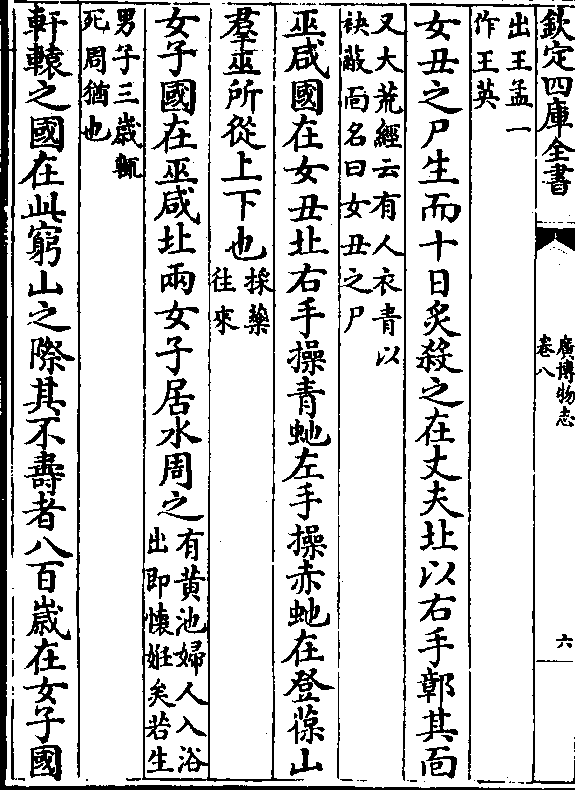 欽定四庫全書
廣博物志
卷八
六
出王孟一
作王英
女丑之尸生而十日炙殺之在丈夫北以右手鄣其面
又大荒經云有人衣青以
袂蔽面名曰女丑之尸
巫咸國在女丑北右手操青虵左手操赤虵在登葆山
羣巫所從上下也採藥
往來
女子國在巫咸北兩女子居水周之有黄池婦人入浴
出即懐姙矣若生
男子三歳輒
死周猶也
軒轅之國在此窮山之際其不壽者八百歳在女子國